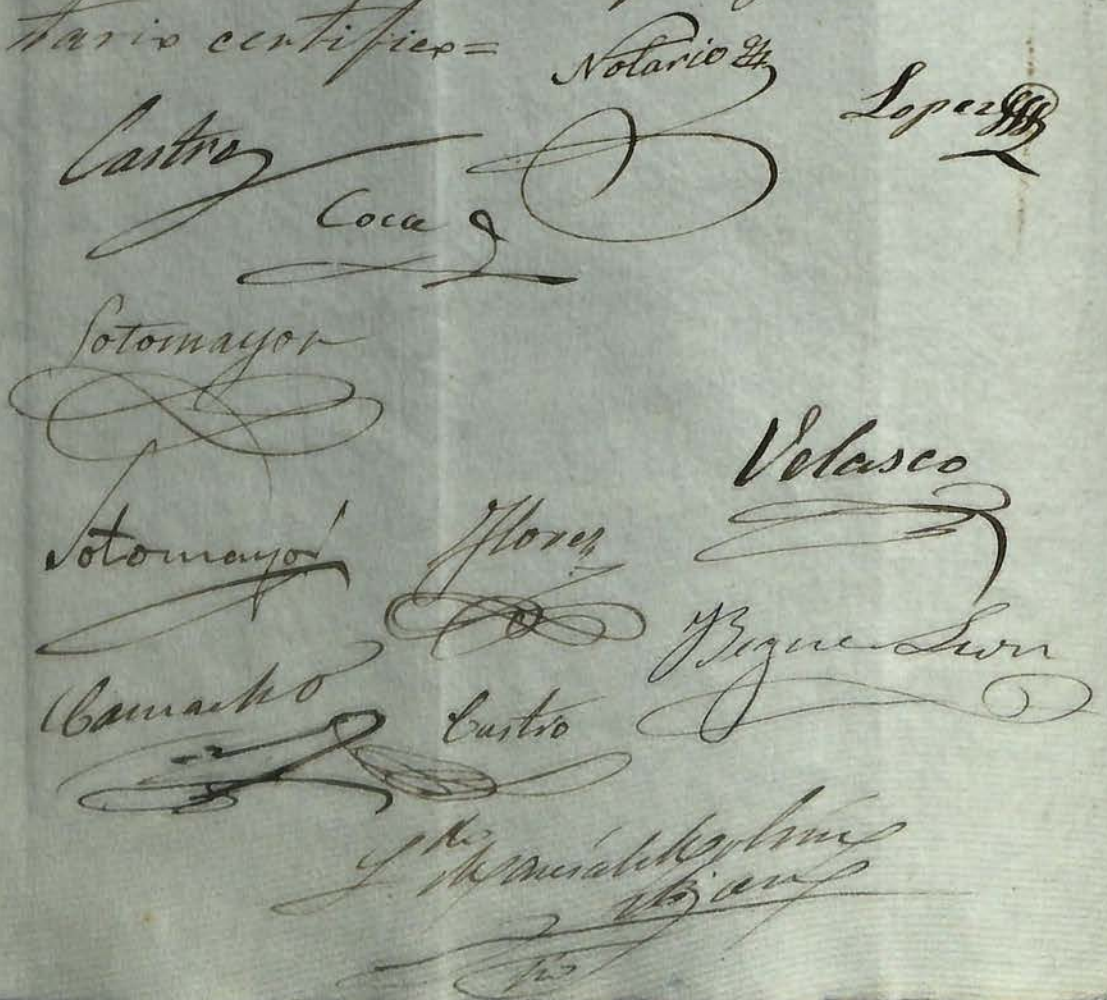 tario certifico=
Notario
Lopez
Castro
Coca
Sotomayor
Velasco
Sotomayor
Florez
Camacho
Castro